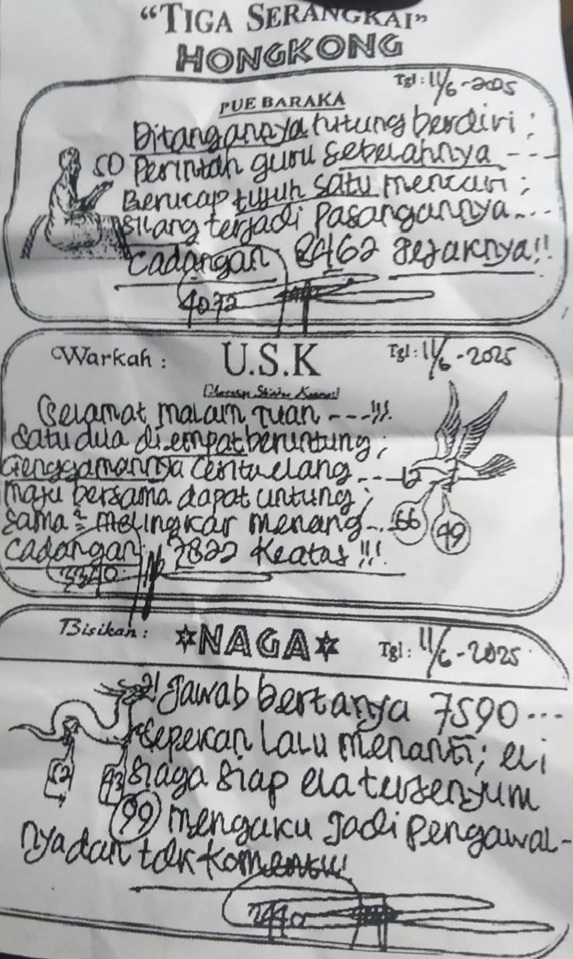 “TIGA SERANGKAI”
HONGKONG
Tgl: 11/6-2025
PUE BARAKA
Ditangannya tutung berdiri;
50 Perintah guru sebelahnya ---
Berucap tujuh satu mencari;
silang terjadi Pasangannya...
Cadangan 8462 Jejaknya!!
4072
Warkah: U.S.K Tgl: 11/6-2025
Selamat malam Tuan ---!!!
Satu dua di empat beruntung;
Genggamannya Cerita elang ...
maju bersama dapat untung;
sama2 melingkar menang...
66 99
Cadangan 7822 Keatas!!!
Bisikan: NAGA Tgl: 11/6-2025
21 Jawab bertanya 7590...
sepekan lalu menanti; eli
siaga siap ela tersenyum
93
99 mengaku Jadi Pengawal-
nya dan tak Komentu!!